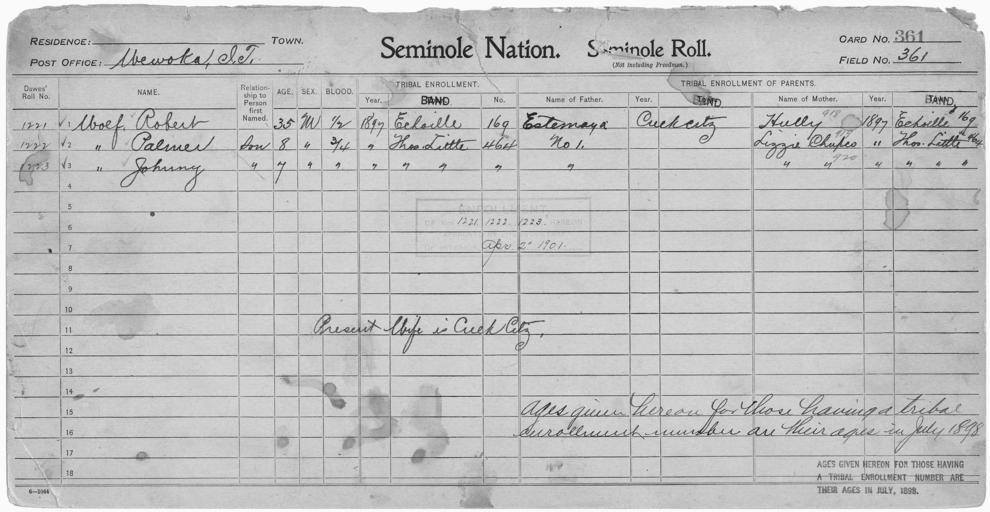 RESIDENCE: TOWN. Seminole Nation. Seminole Roll. CARD NO. 361
POST OFFICE: Wewoka, I.T. (Not including Freedmen.) FIELD NO. 361
Dawes' Roll No. NAME. Relationship to Person first Named. AGE. SEX. BLOOD. TRIBAL ENROLLMENT. TRIBAL ENROLLMENT OF PARENTS.
Year. BAND. No. Name of Father. Year. BAND Name of Mother. Year. BAND.
1221 √ 1 Wolf, Robert 35 M 1/2 1897 Echoille 169 Estemaya Creek city Hully 918 1897 Echoille 169
1222 √ 2 " Palmer Son 8 " 3/4 " Thos. Little 464 No 1. Lizzie Chupco 919 " Thos. Little 464
1223 √ 3 " Johnny " 7 " " " " " " " " " 920 " " "
4
5
ENROLLMENT
6 OF HEREON
1221, 1222, 1223.
7
Apr. 2" 1901.
8
9
10
11 Present Wife is Creek City,
12
13
14
15 Ages given hereon for those having a tribal
16 enrollment number are their ages in July 1898
17
AGES GIVEN HEREON FOR THOSE HAVING
18 A TRIBAL ENROLLMENT NUMBER ARE
6-2664 THEIR AGES IN JULY, 1898.